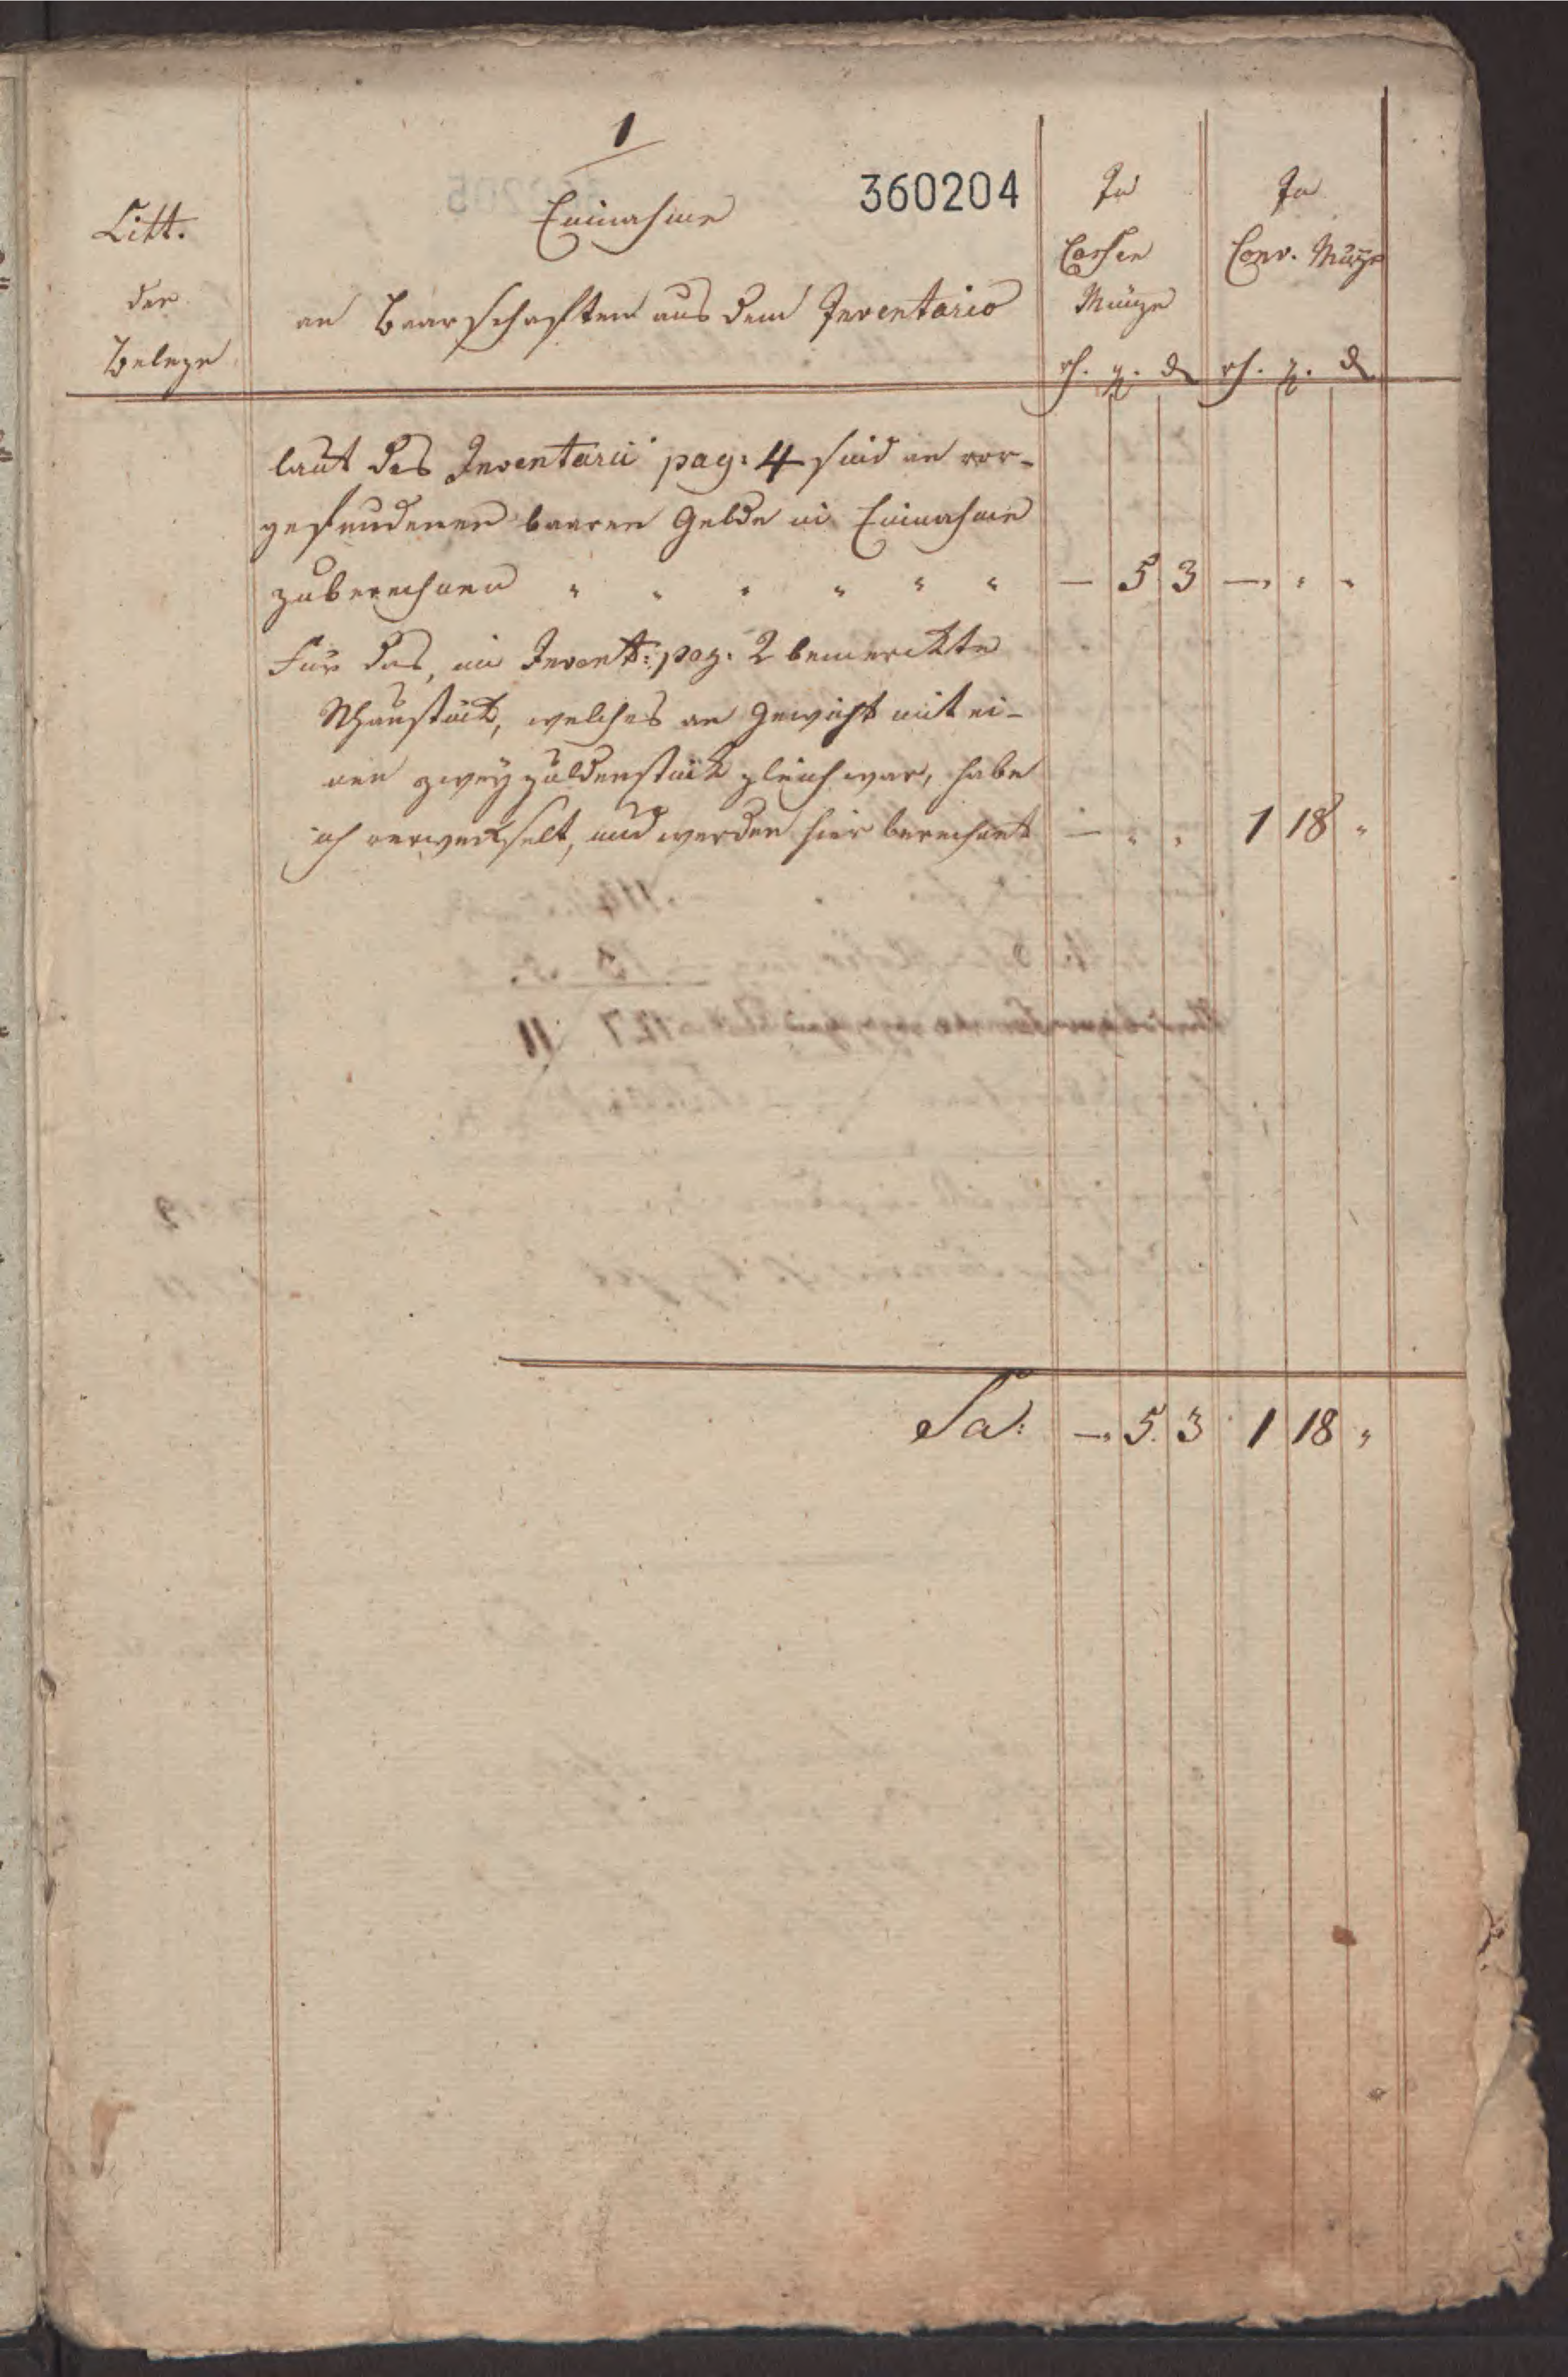 1
360204
Litt.
der
Belege
Einnahme
an Baarschaften aus dem Inventario
In
Cassen
Münze
rh. g. d
In
Conv. Münze
rh. g. d
laut des Inventarii pag: 4 sind an vor-
gefundenen baaren Gelde in Einnahme
zuberechnen " " " " " " — 5 3 — " "
Für das, im Invent: pag: 2 bemerckte
Schaustück, welches an Gewicht mit ei-
nen zweygüldenstück gleich war, habe
ich verwechselt, und werden hier berechnet — " " 1 18 "
Sa: — 5. 3 1 18 "